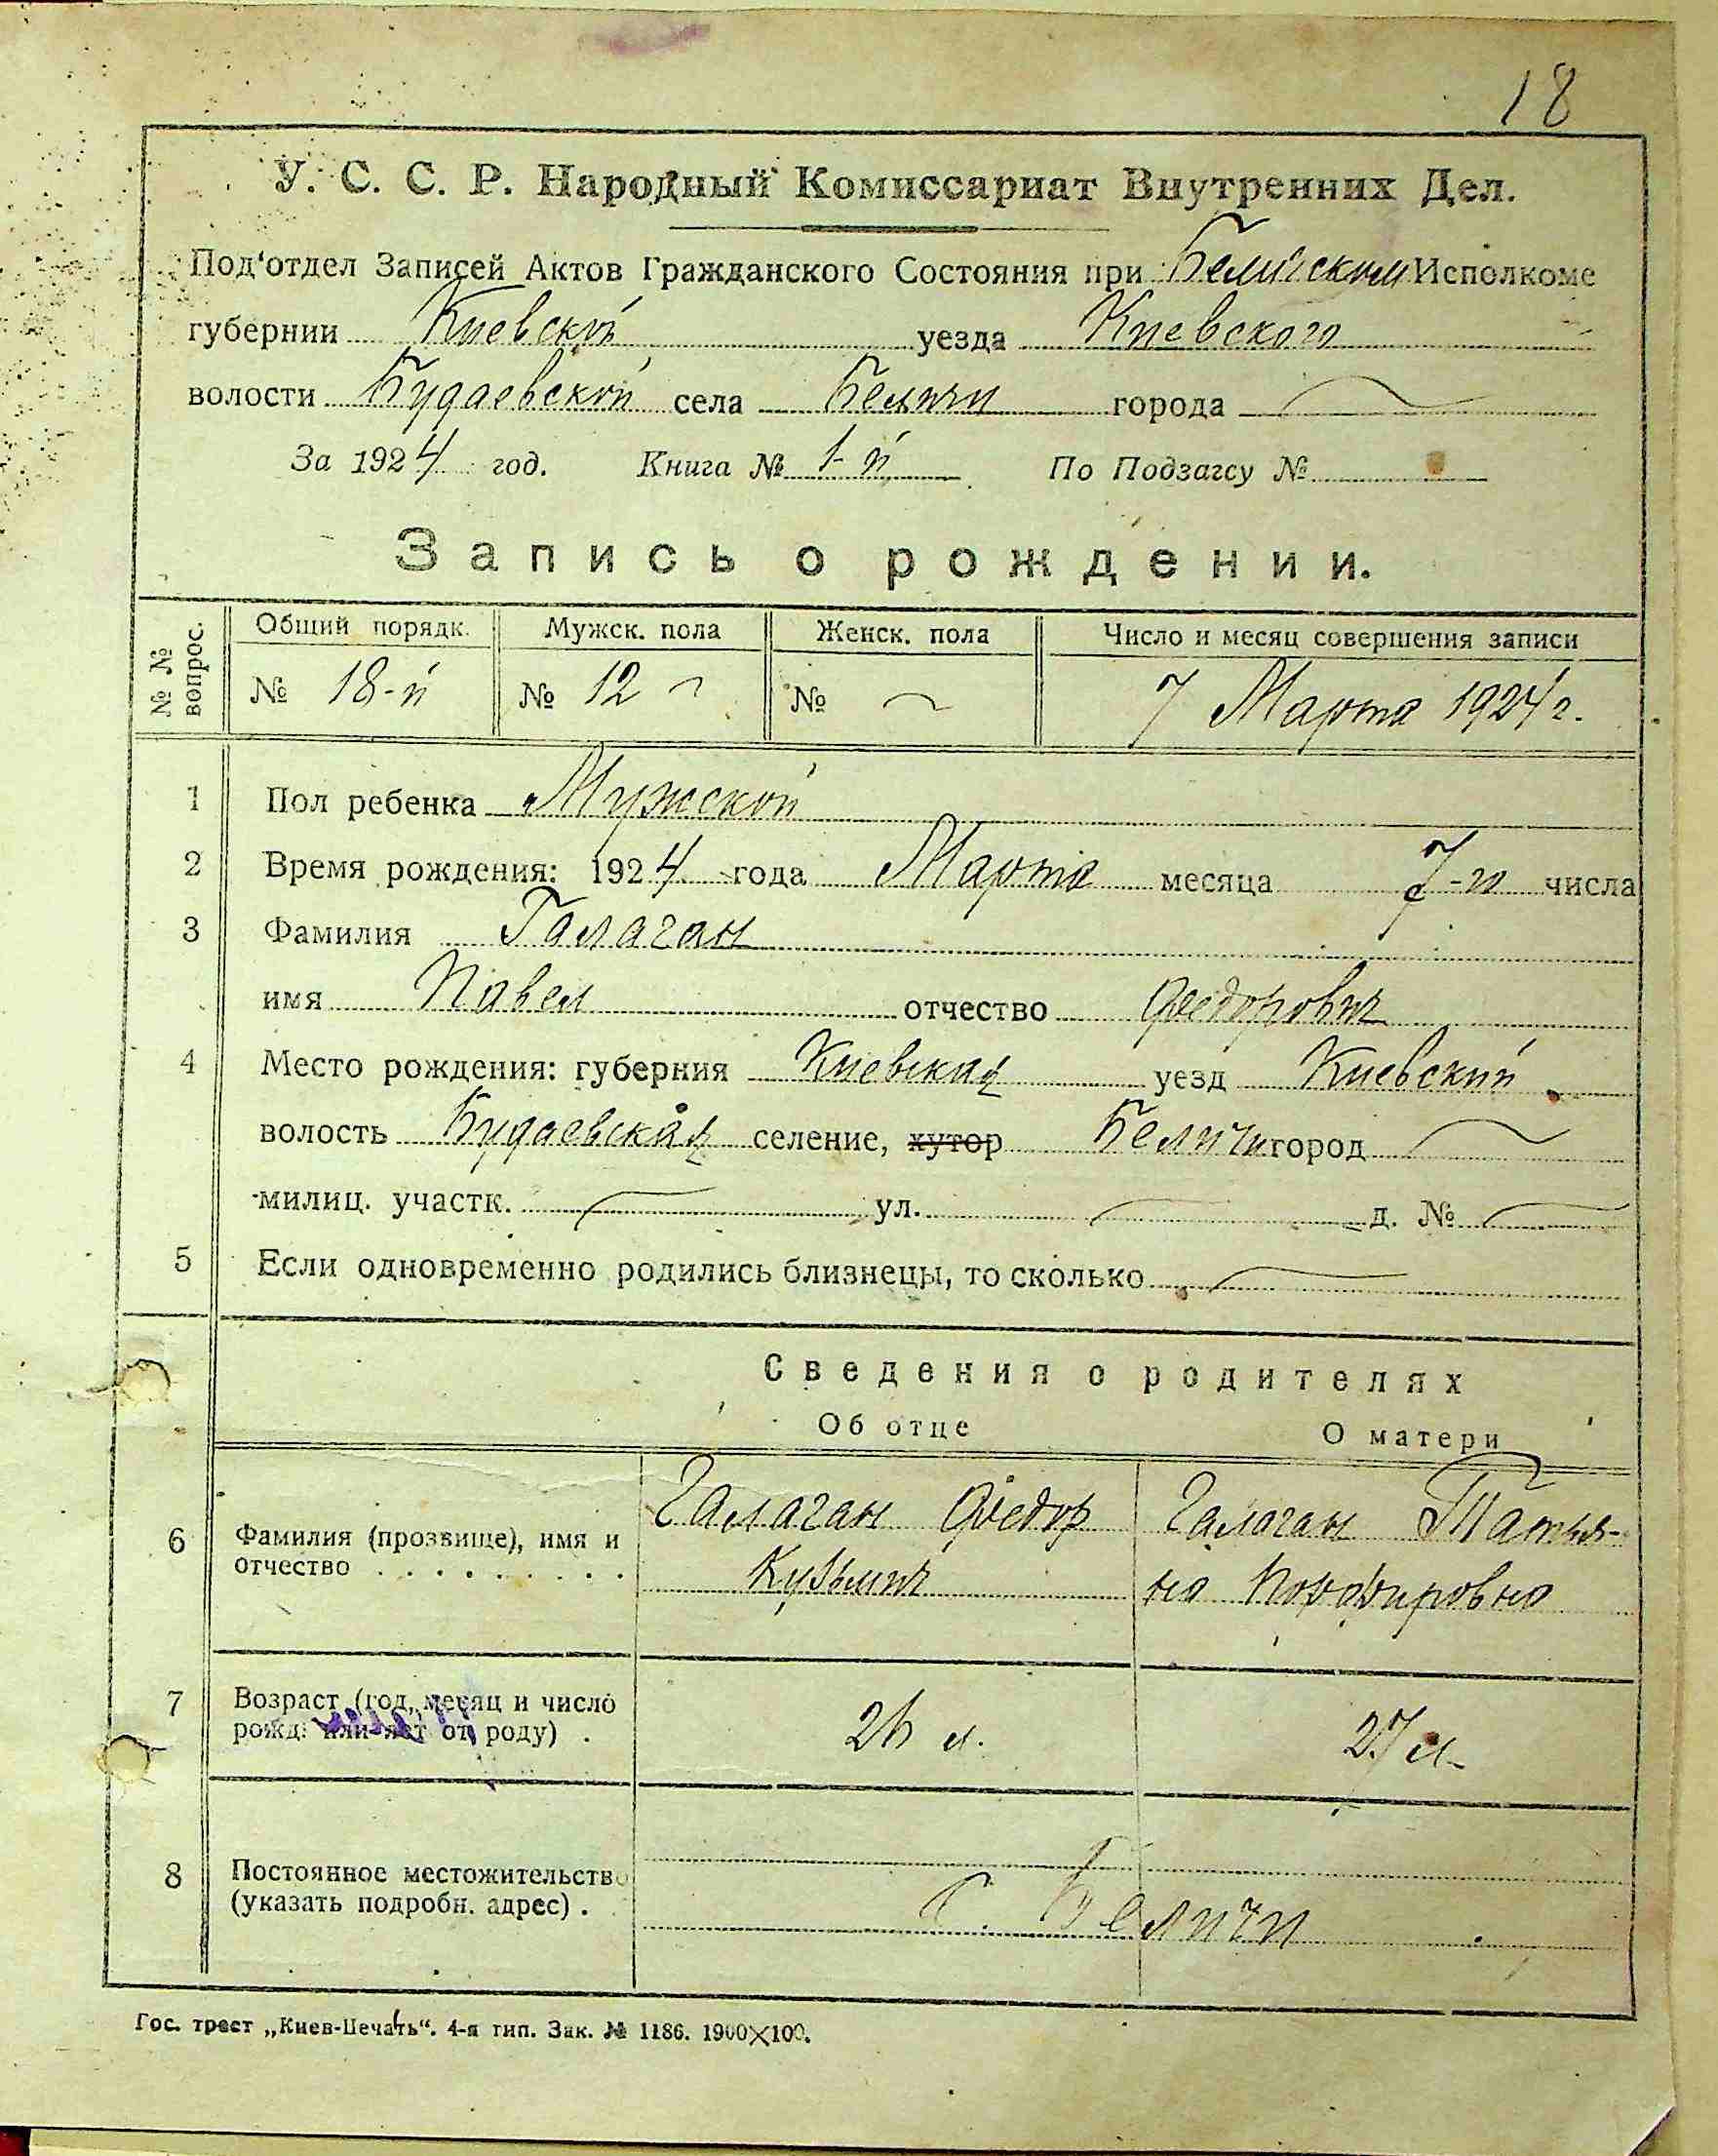 18
У. С. С. Р. Народный Комиссариат Внутренних Дел.
Под'отдел Записей Актов Гражданского Состояния при Беличском Исполкоме
губернии Киевской уезда Киевского
волости Будаевской села Беличи города
За 1924 год. Книга № 1-й По Подзагсу №
Запись о рождении.
№ № вопрос. Общий порядк. Мужск. пола Женск. пола Число и месяц совершения записи
№ 18-й № 12 № 7 Марта 1924 г.
1 Пол ребенка Мужской
2 Время рождения: 1924 года Марта месяца 7-го числа
3 Фамилия Галаган
имя Павел отчество Федорович
4 Место рождения: губерния Киевская уезд Киевский
волость Будаевская селение, хутор Беличи город
милиц. участк. ул. д. №
5 Если одновременно родились близнецы, то сколько
Сведения о родителях
Об отце О матери
Галаган Федор Галаган Татья-
6 Фамилия (прозвище), имя и
отчество Кузьмич на Порфировна
7 Возраст (год, месяц и число
рожд. или лет от роду) 26 л. 27 л.
8 Постоянное местожительство
(указать подробн. адрес) С. Беличи
Гос. трест „Киев-Печать“. 4-я тип. Зак. № 1186. 1900×100.